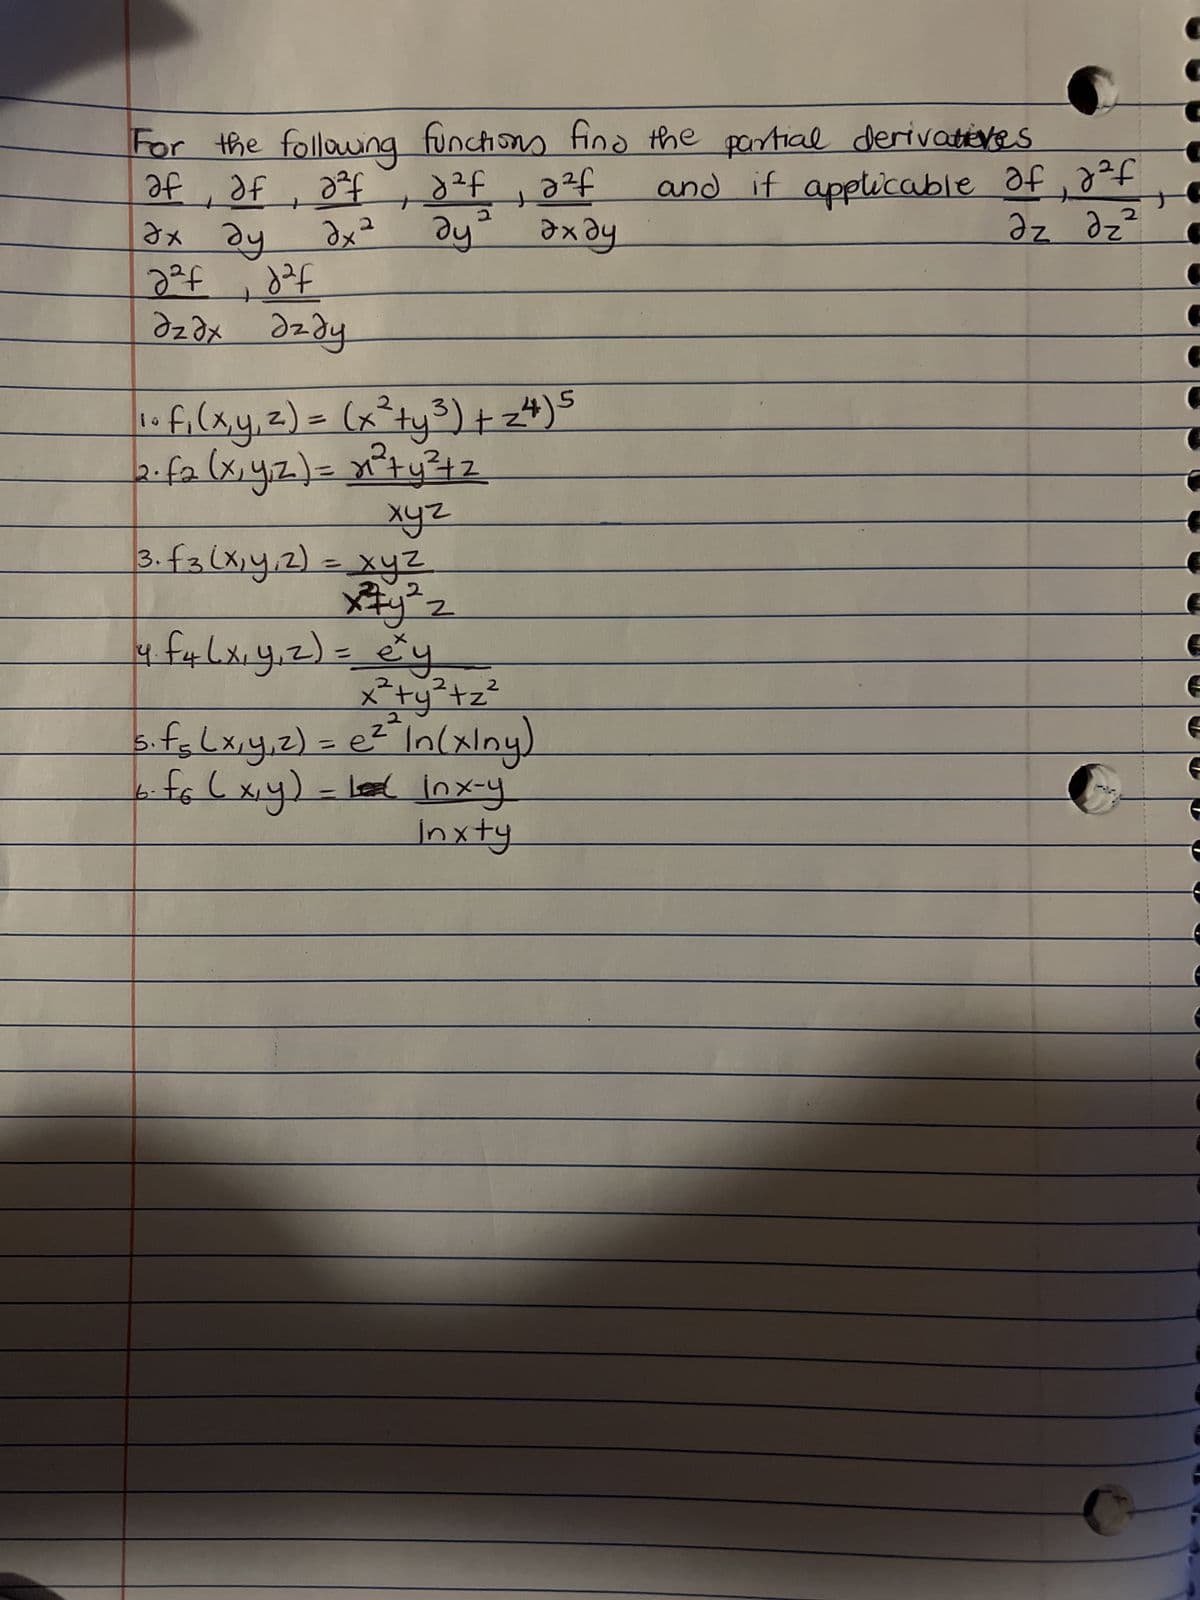 For the following functions find the partial derivatives
∂f/∂x , ∂f/∂y , ∂²f/∂x² , ∂²f/∂y² , ∂²f/∂x∂y and if applicable ∂f/∂z , ∂²f/∂z² ,
∂²f/∂z∂x , ∂²f/∂z∂y
1. f₁(x,y,z) = (x²+y³) + z⁴)⁵
2. f2 (x,y,z) = x²+y²+z / xyz
3. f3 (x,y,z) = xyz / x²+y²z
4. f4 (x,y,z) = eˣy / x²+y²+z²
5. f5 (x,y,z) = e^z² ln(xlny)
6. f6 (x,y) = lnx-y / lnx+y